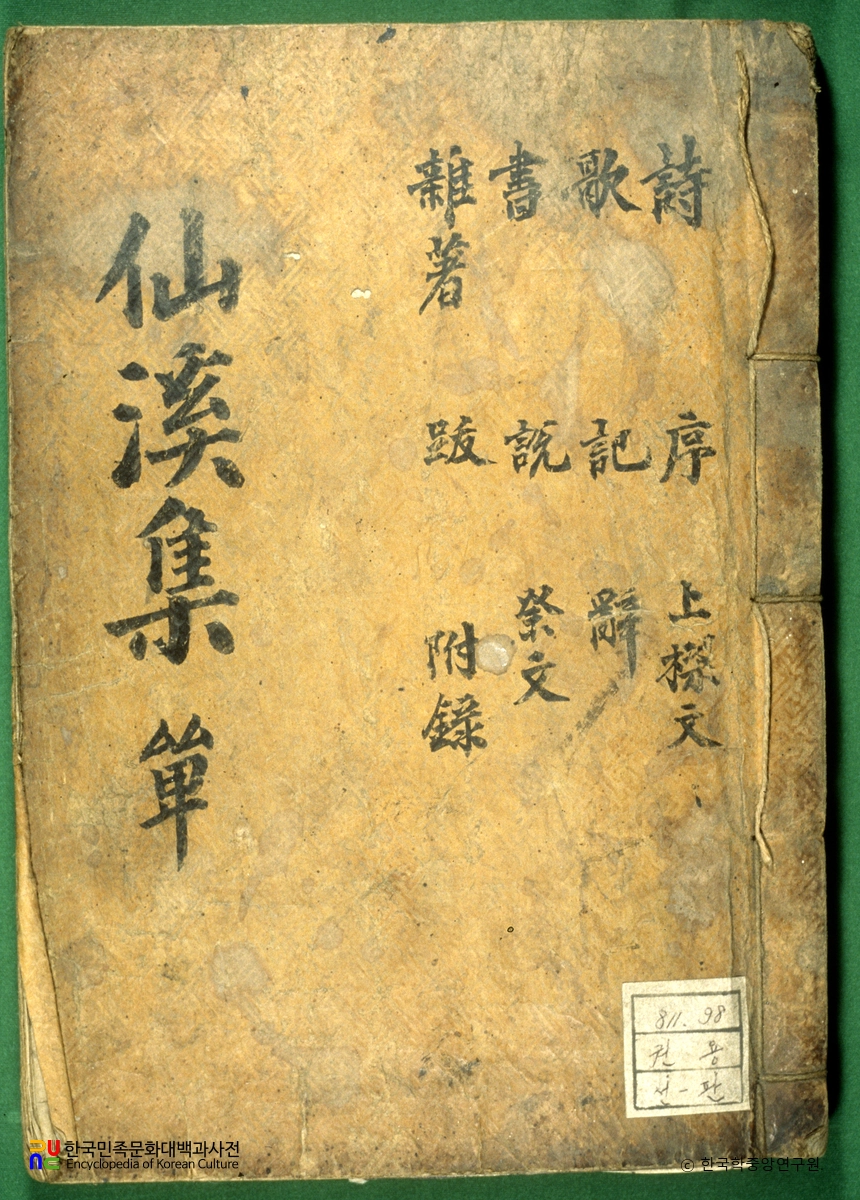 詩 序 上樑文
歌 記 辭
書 說 祭文
雜著 跋 附錄
仙溪集 單
811.98
권 용
선-판
한국민족문화대백과사전
Encyclopedia of Korean Culture
ⓒ 한국학중앙연구원